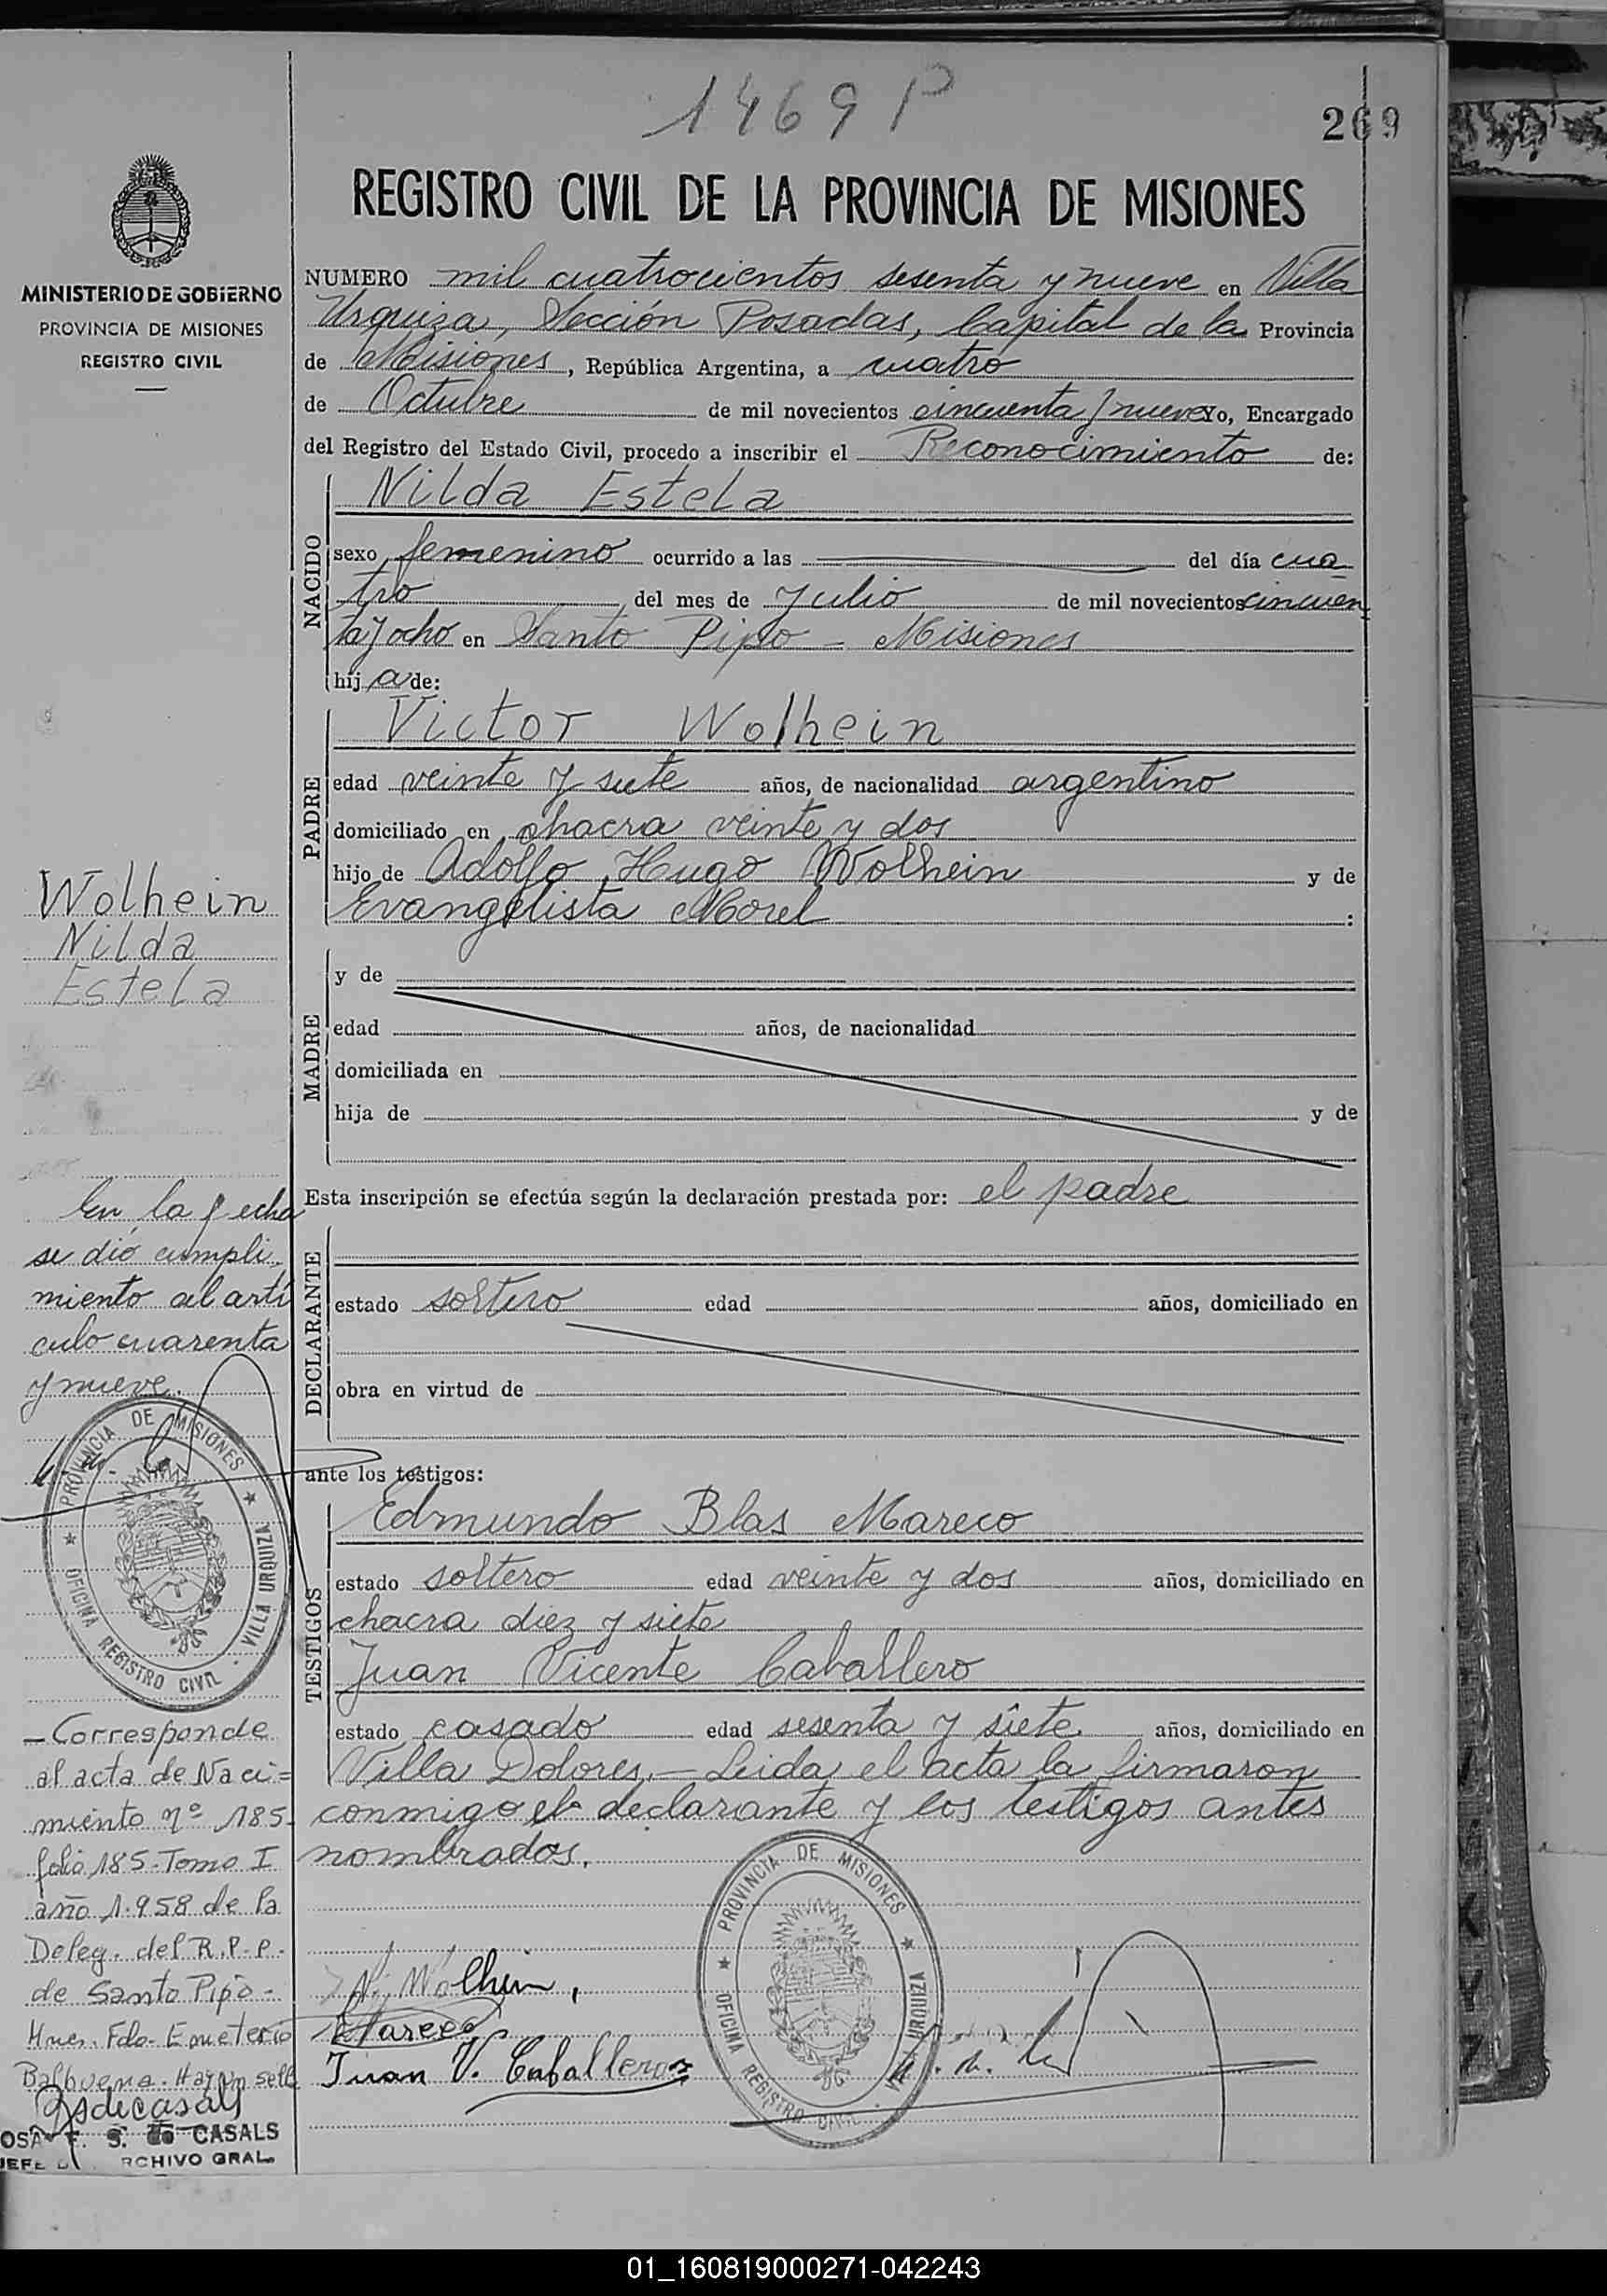 1469 P
269
REGISTRO CIVIL DE LA PROVINCIA DE MISIONES
MINISTERIO DE GOBIERNO
PROVINCIA DE MISIONES
REGISTRO CIVIL
NUMERO mil cuatrocientos sesenta y nueve en Villa
Urquiza, Sección Posadas, Capital de la Provincia
de Misiones, República Argentina, a cuatro
de Octubre de mil novecientos cincuenta y nueve Yo, Encargado
del Registro del Estado Civil, procedo a inscribir el Reconocimiento de:
NACIDO
Nilda Estela
sexo femenino ocurrido a las del día cua
tro del mes de Julio de mil novecientos cincuen
ta y ocho en Santo Pipo - Misiones
hij a de:
PADRE
Victor Wolhein
edad veinte y siete años, de nacionalidad argentino
domiciliado en chacra veinte y dos
hijo de Adolfo Hugo Wolhein y de
Evangelista Morel :
MADRE
y de
edad años, de nacionalidad
domiciliada en
hija de y de
Esta inscripción se efectúa según la declaración prestada por: el padre
DECLARANTE
estado soltero edad años, domiciliado en
obra en virtud de
ante los testigos:
TESTIGOS
Edmundo Blas Mareco
estado soltero edad veinte y dos años, domiciliado en
chacra diez y siete
Juan Vicente Caballero
estado casado edad sesenta y siete años, domiciliado en
Villa Dolores.- Leida el acta la firmaron
conmigo el declarante y los testigos antes
nombrados.
Wolhein
Mareco
Juan V. Caballero
PROVINCIA DE MISIONES
OFICINA REGISTRO CIVIL VILLA URQUIZA
Wolhein
Nilda
Estela
En la fecha
se dió cumpli
miento al artí
culo cuarenta
y nueve.
PROVINCIA DE MISIONES
OFICINA REGISTRO CIVIL - VILLA URQUIZA
- Corresponde
al acta de Naci=
miento nº 185-
folio 185- Tomo I
año 1.958 de la
Deleg. del R.P.P.
de Santo Pipó-
Fdo- Emeterio
Balbuena. Hay un sello
Rsdecasals
OSA F. S. de CASALS
JEFE RCHIVO GRAL.
01_160819000271-042243